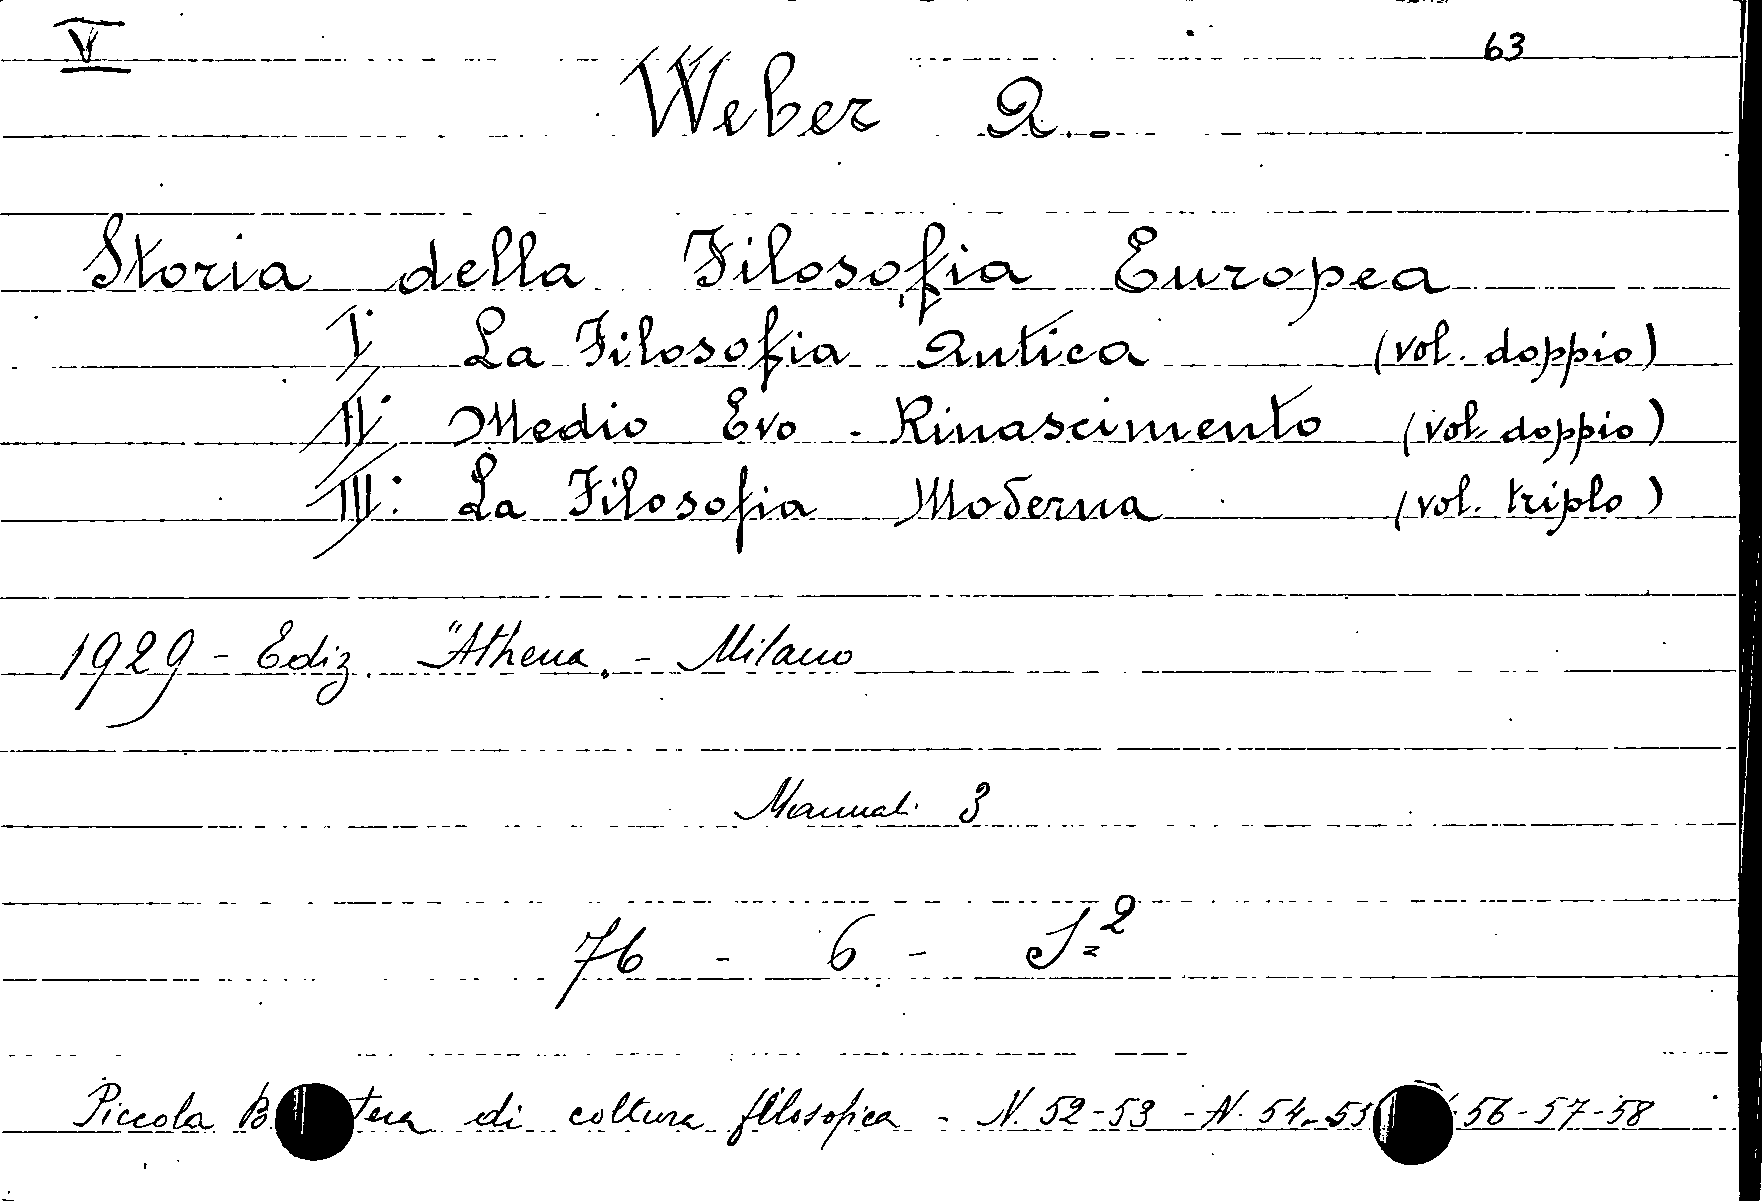 V 63
Weber A.-
Storia della Filosofia Europea
I: La Filosofia Antica (vol. doppio)
II: Medio Evo - Rinascimento (vol. doppio)
III: La Filosofia Moderna (vol. triplo)
1929 - Ediz. "Athena" - Milano
Manuali 3
76 - 6 - S=2
Piccola di coltura filosofica - N. 52-53 - N. 54-55 56-57-58